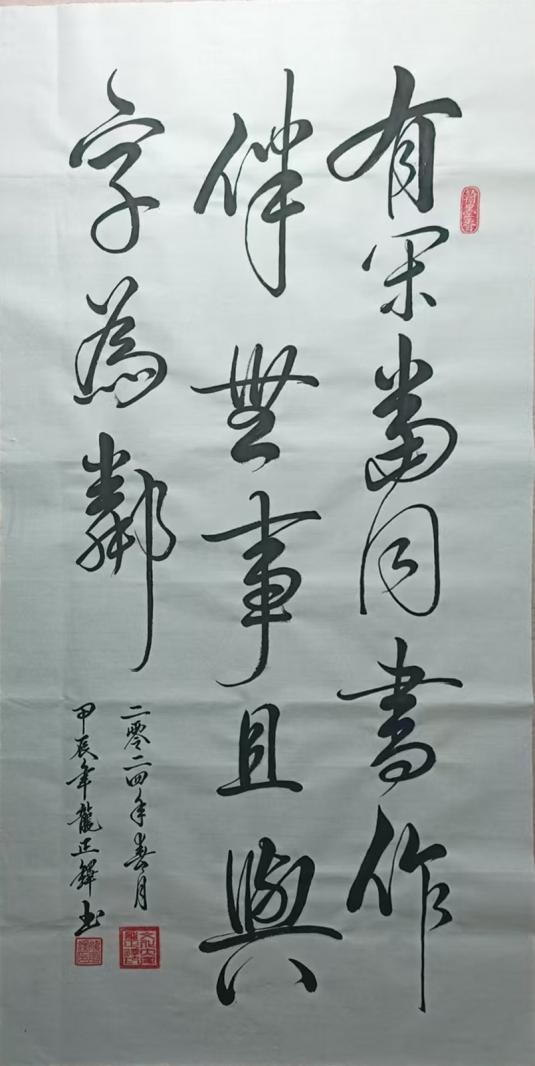 有闲當同書作
伴無事且與
字為鄰
二零二四年春月
甲辰年龍正鐸书